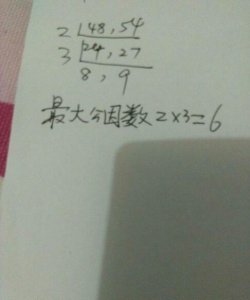 2 48,54
3 24,27
8,9
最大公因数2×3=6